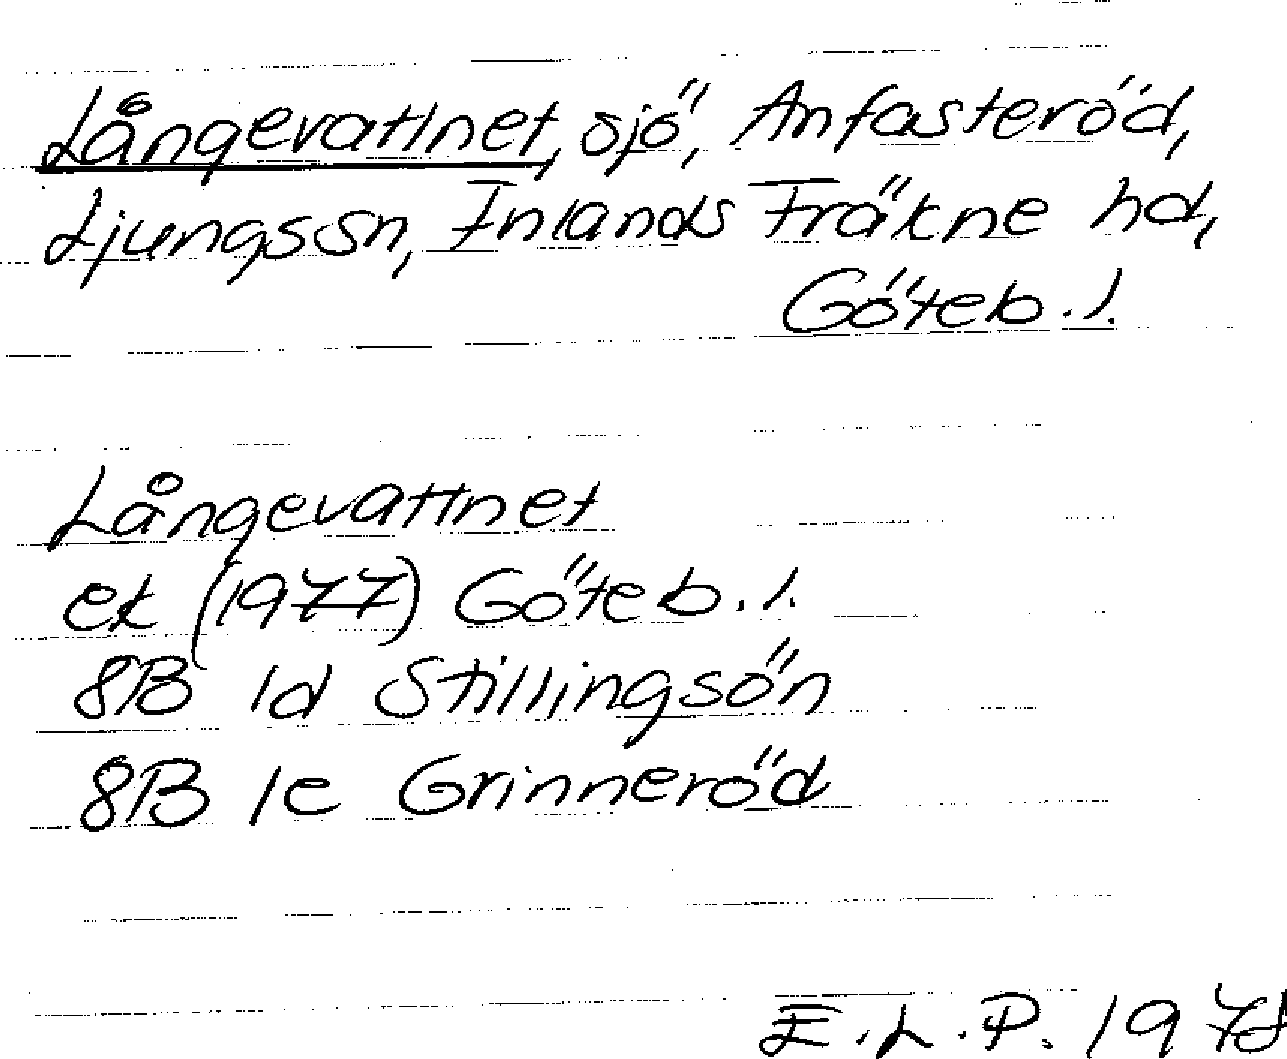 Långevattnet, sjö, Anfasteröd,
Ljungssn, Inlands Fräkne hd,
Göteb. l.
Långevattnet
ek (1977) Göteb. l.
8B 1d Stillingsön
8B 1e Grinneröd
E. L. P. 1978